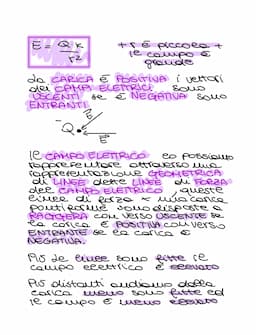 E = Q k / r²
+ r è piccolo +
il campo è
grande
La CARICA È POSITIVA i vettori
dei CAMPI ELETTRICI sono
USCENTI se è NEGATIVA sono
ENTRANTI.
-Q E
E
Il CAMPO ELETTRICO lo possiamo
rappresentare attraverso una
rappresentazione GEOMETRICA
di LINEE dette LINEE di FORZA
del CAMPO ELETTRICO, queste
linee di forza x una carica
puntiforme sono disposte a
RAGGIERA con verso USCENTE se
la carica è POSITIVA con verso
ENTRANTE se la carica è
NEGATIVA.
Più le linee sono fitte il
campo elettrico è elevato
Più distanti andiamo dalla
carica meno sono fitte ed
il campo è meno elevato